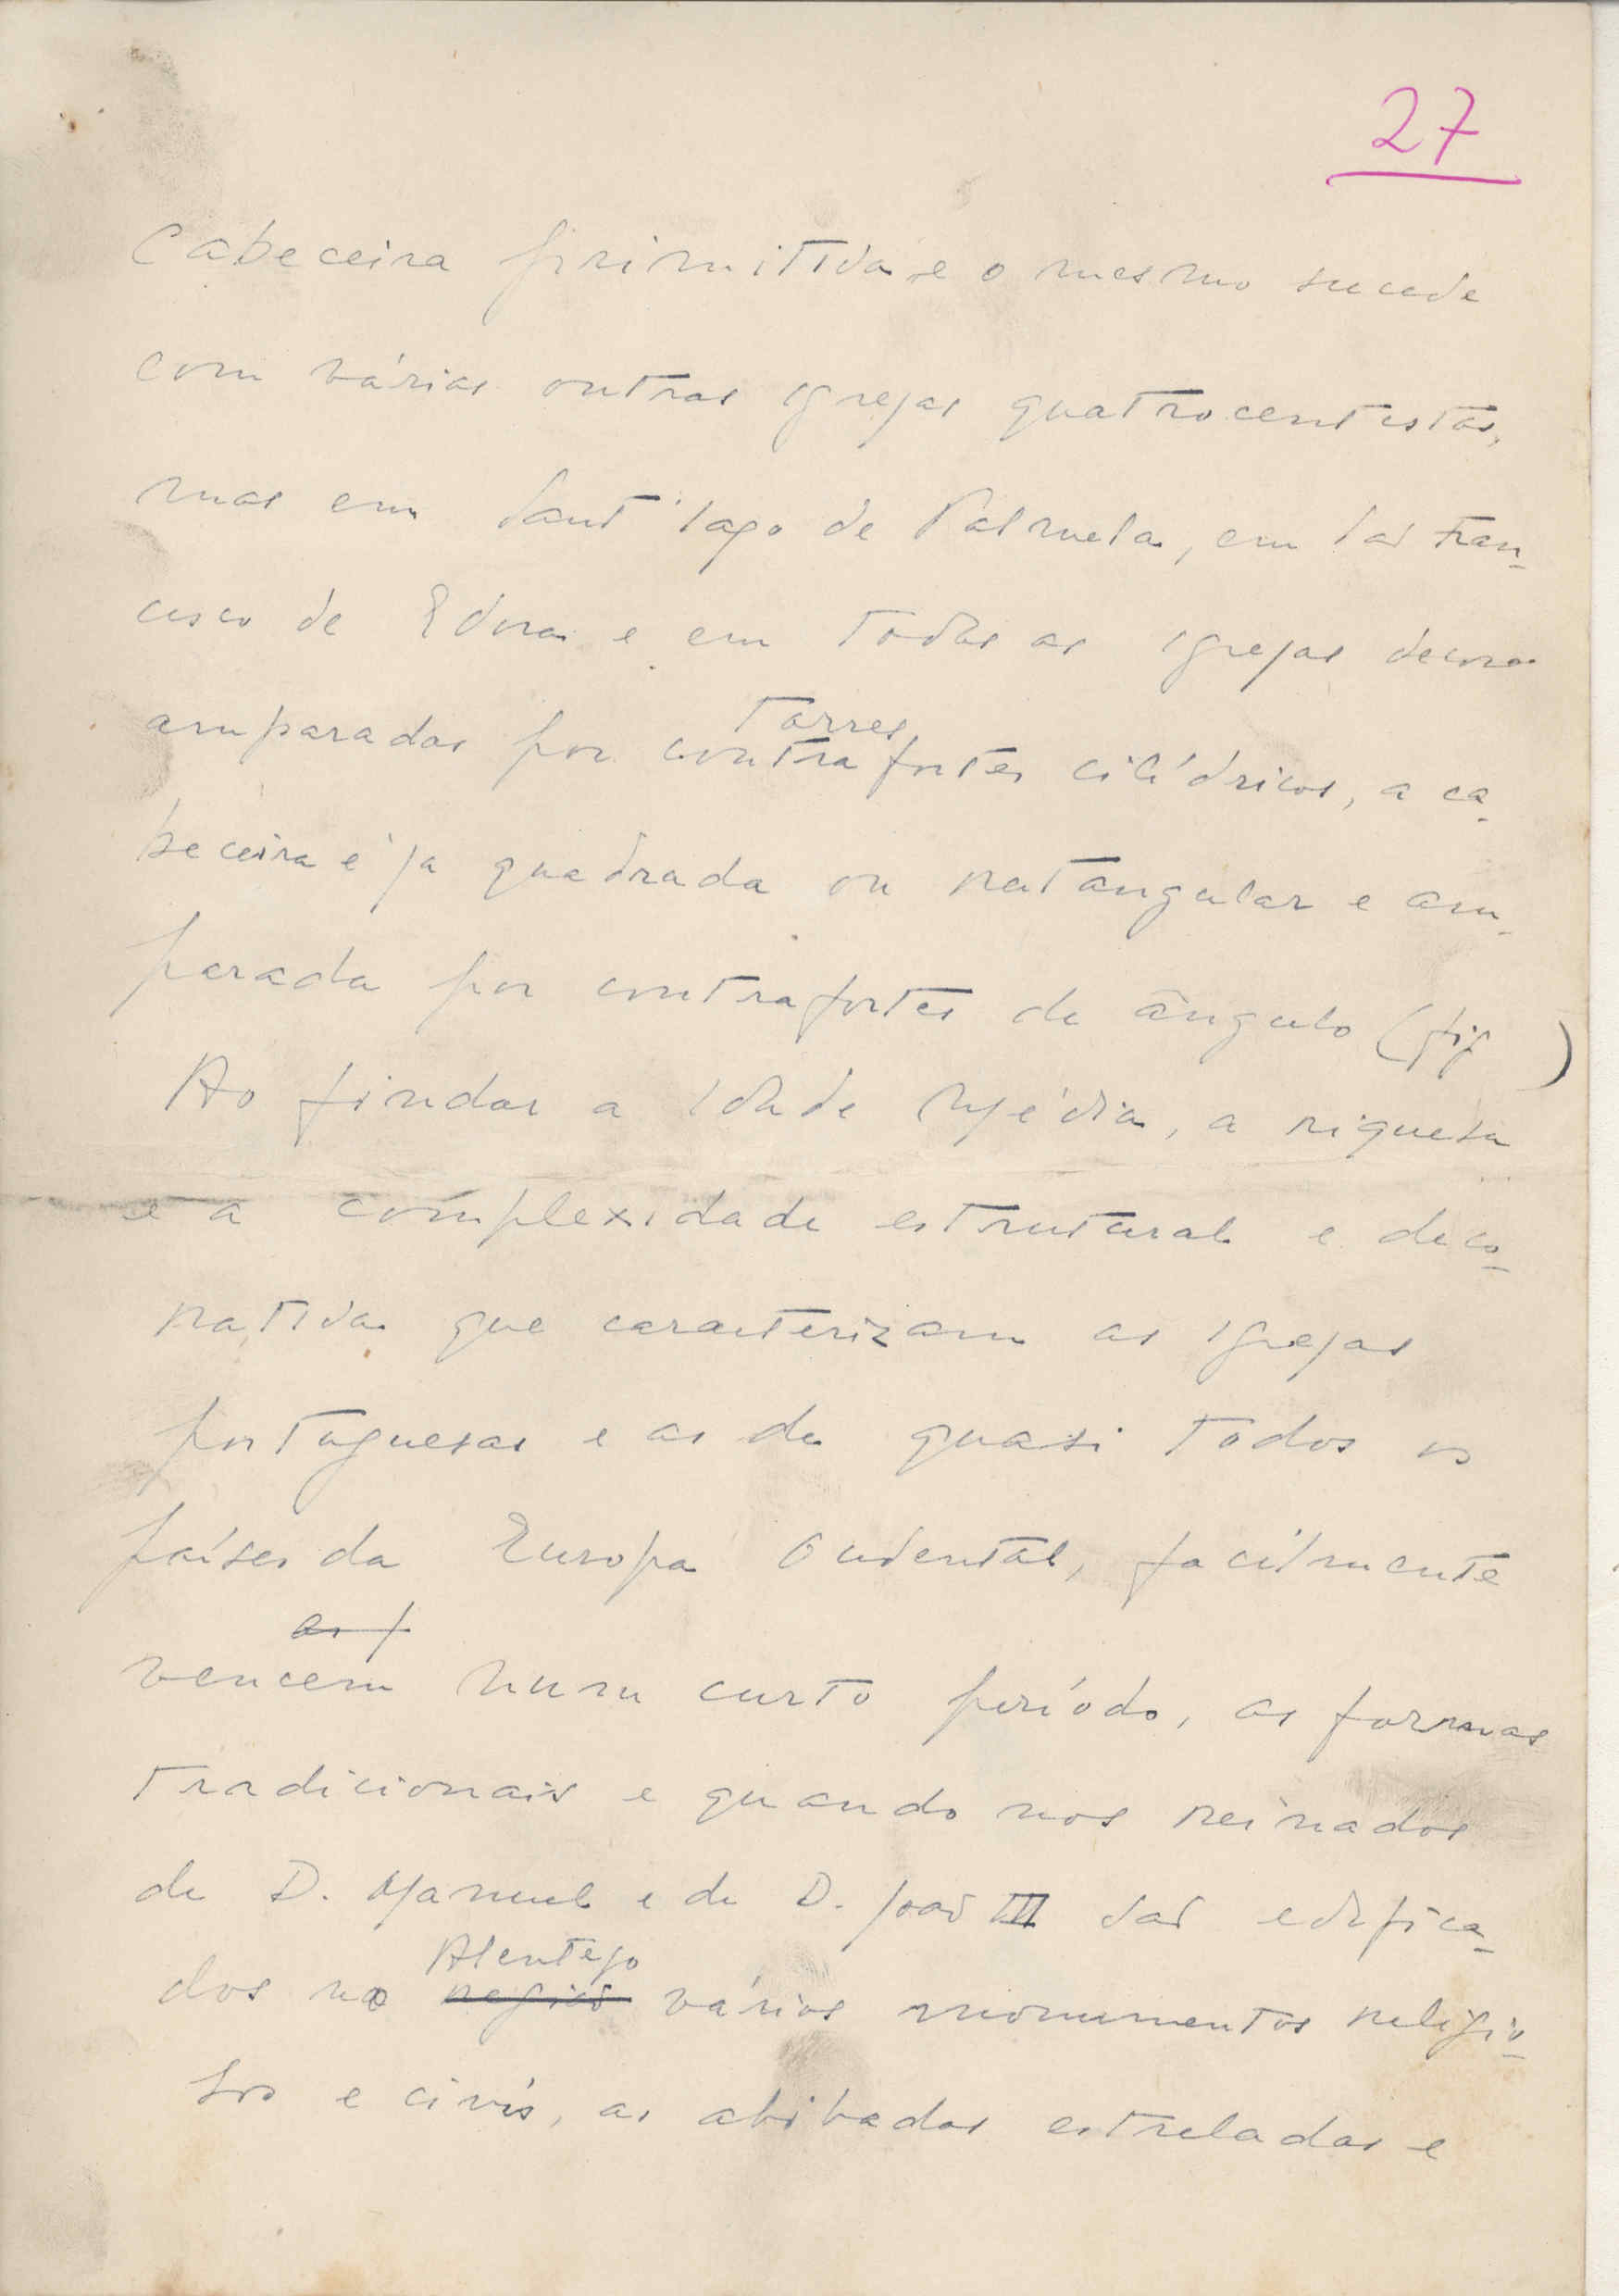 27
Cabeceira primitiva e o mesmo sucede
com várias outras igrejas quatrocentistas,
mas em Sant'Iago de Palmela, em São Fran-
cisco de Evora e em todas as igrejas
amparadas por contrafortes cilídricos, a ca-
torres
beceira é já quadrada ou ratangular e am-
parada por contrafortes de ângulo (fig )
Ao findar a Idade Média, a riquesa
e a complexidade estrutural e deco-
rativa que caracterizam as igrejas
portuguesas e as de quasi todos os
países da Europa Ocidental, facilmente
vencem num curto período, as formas
tradicionais e quando nos reinados
de D. Manuel e de D. João III são edifica-
Alentejo
dos no região vários monumentos religio-
sos e civís, as abóbadas estreladas e